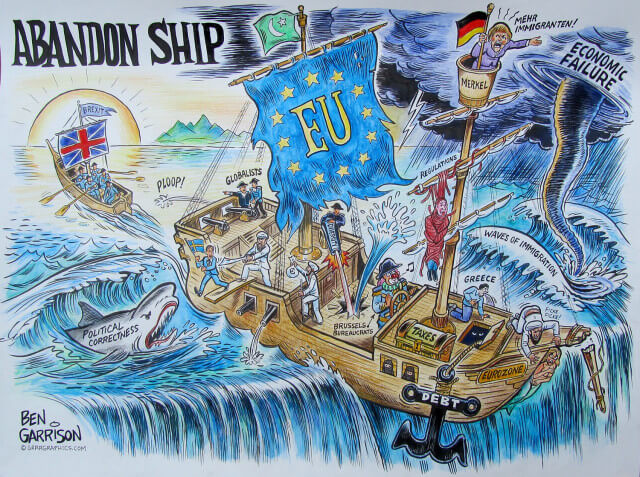 ABANDON SHIP
"MEHR
IMMIGRANTEN!"
MERKEL
ECONOMIC
FAILURE
BREXIT
PLOOP!
GLOBALISTS
EU
REGULATIONS
WAVES OF IMMIGRATION
GREECE
POLITICAL
CORRECTNESS
BRUSSELS
BUREAUCRATS
TAXES
EUROZONE
DEBT
BEN
GARRISON
© GRRRGRAPHICS.COM